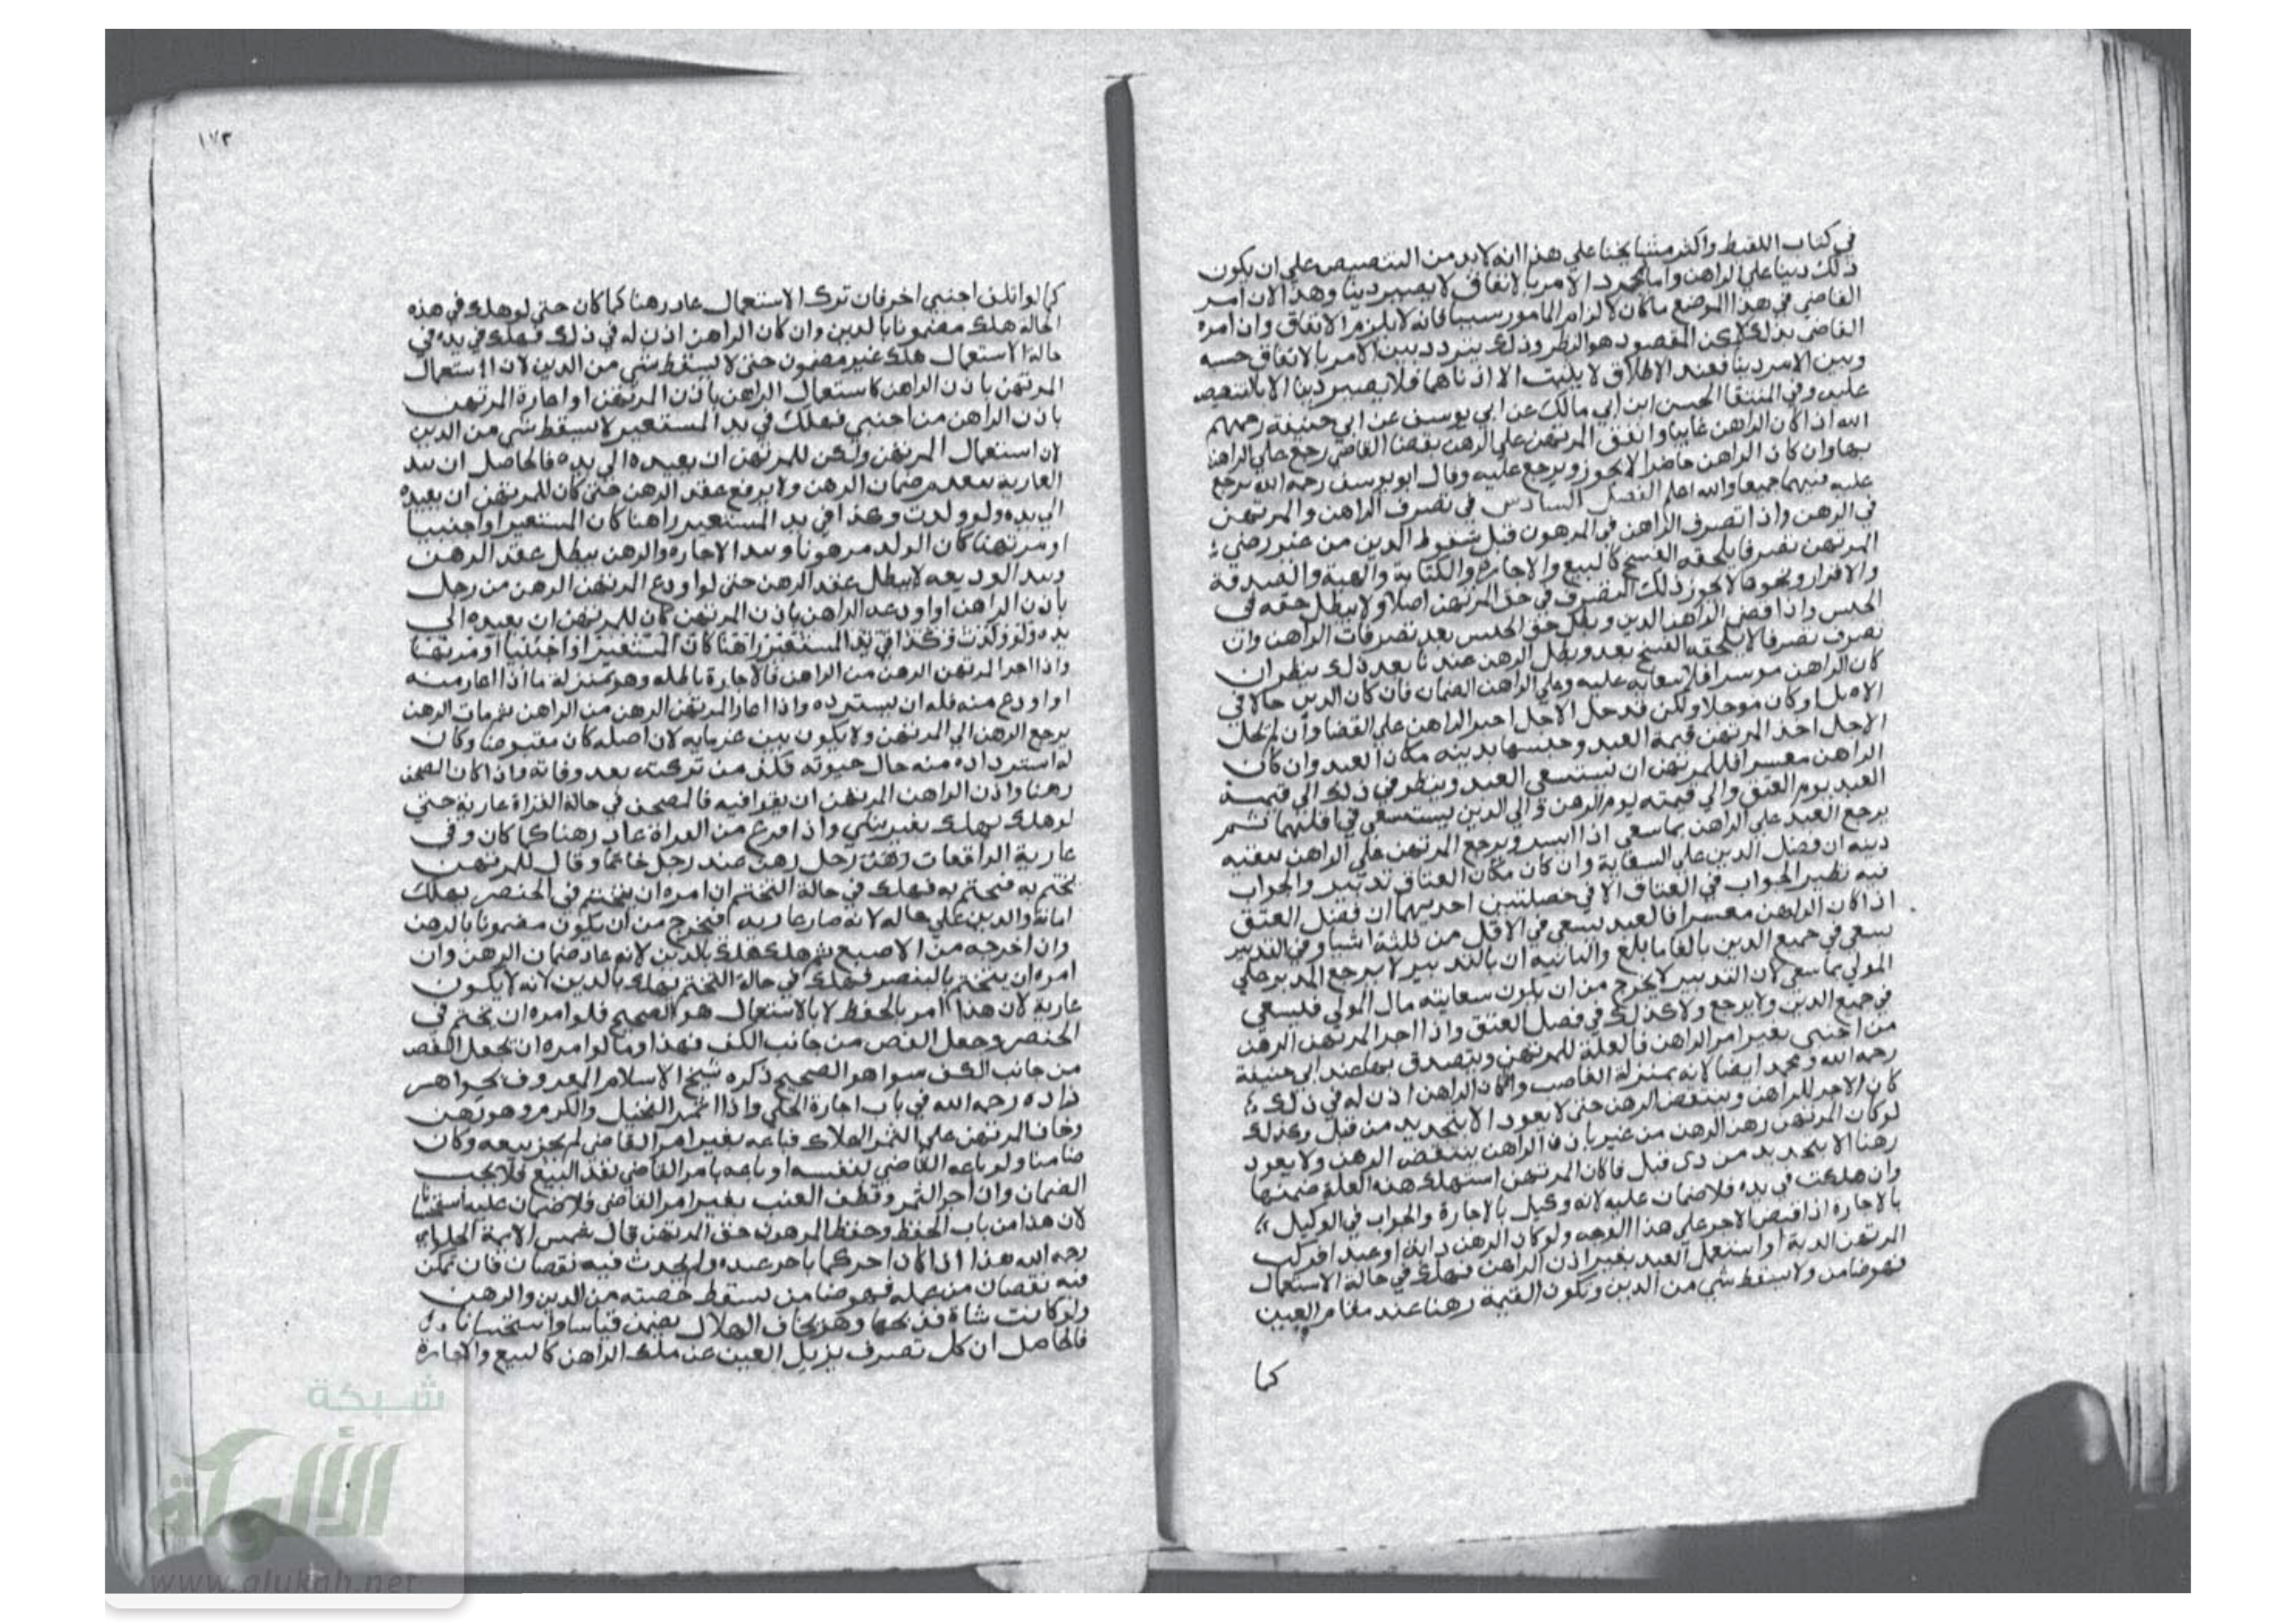 في كتاب اللقيط واكثر مشايخنا علي هذا انه لابد من التنصيص علي ان يكون
ذلك دينا علي الراهن واما بمجرد الامر بالانفاق لا يصير دينا وهذا لان امر
القاضي في هذا الموضع ما كان لالزام المامور سببا فانه لا يلزم الانفاق وان امره
القاضي بذلك لكن المقصود هو النظر وذلك يتردد بين الامر بالانفاق حسبه
وبين الامر دينا فعند الاطلاق لا يثبت الا ادناهما فلا يصير دينا الا بالتنصيص
عليه وفي المنتقا الحسن ابن ابي مالك عن ابي يوسف عن ابي حنيفة رحمهم
الله اذا كان الراهن غايبا وانفق المرتهن علي الرهن بقضا القاضي رجع علي الراهن
بها وان كان الراهن حاضرا لا يجوز ويرجع عليه وقال ابو يوسف رحمه الله يرجع
عليه فيهما جميعا والله اعلم الفصل السادس في تصرف الراهن والمرتهن
في الرهن واذا تصرف الراهن في المرهون قبل سقوط الدين من غير رضي
المرتهن تصرفا يلحقه الفسخ كالبيع والاجارة والكتابة والهبة والصدقة
والاقرار ونحوها لا يجوز ذلك التصرف في حق المرتهن اصلا ولا يبطل حقه في
الحبس واذا قضي الراهن الدين وبطل حق الحبس بعد تصرفات الراهن وان
تصرف تصرفا لا يلحقه الفسخ بعد وبطل الرهن عندنا بعد ذلك ينظر ان
كان الراهن موسرا فلا سعاية عليه وعلي الراهن الضمان فان كان الدين حالا في
الاصل او كان موجلا ولكن قد حل الاجل اجبر الراهن علي القضا وان لم يحل
الاجل اخذ المرتهن قيمة العبد وحبسها بدينه مكان العبد وان كان
الراهن معسرا فللمرتهن ان يستسعي العبد وينظر في ذلك الي قيمة
العبد يوم العتق والي قيمته يوم الرهن والي الدين يستسعي في اقلها ثم
يرجع العبد علي الراهن بما سعي اذا ايسر ويرجع المرتهن علي الراهن ببقيه
دينه ان فضل الدين علي السعاية وان كان مكان العتاق تدبير والجواب
فيه نظير الجواب في العتاق الا في خصلتين احديهما ان فضل العتق
اذا كان الراهن معسرا فالعبد يسعي في الاقل من ثلثة اشيا وفي التدبير
يسعي في جميع الدين بالغا ما بلغ والثانية ان بالتدبير لا يرجع المدبر علي
المولي بما سعي لان التدبير لا يخرج من ان يكون سعايته مال المولي فليسعي
في جميع الدين ولا يرجع ولا كذلك في فصل العتق واذا اجر المرتهن الرهن
من اجنبي بغير امر الراهن فالغلة للمرتهن ويتصدق بها عند ابي حنيفة
رحمه الله ومحمد ايضا لانه بمنزلة الغاصب وان كان الراهن اذن له في ذلك
كان الاجر للراهن وينتقض الرهن حتي لا يعود الا بتجديد من قبل وكذلك
لو كان المرتهن رهن الرهن من غير باذن الراهن ينتقض الرهن ولا يعود
رهنا الا بتجديد من ذي قبل فان كان المرتهن استهلك هذه الغلة ضمنها
وان هلكت في يده فلا ضمان عليه لانه وكيل بالاجارة والجواب في الوكيل
بالاجارة اذا قبض الاجر علي هذا الوجه ولو كان الرهن دابة او عبدا فركب
المرتهن الدابة او استعمل العبد بغير اذن الراهن فهلك في حالة الاستعمال
فهو ضامن ولا يسقط شي من الدين وتكون القيمة رهنا عنده مقام العين
كما
١٧٣
كما لو اتلف اجنبي اخر فان ترك الاستعمال عاد رهنا كما كان حتي لو هلك في هذه
الحالة هلك مضمونا بالدين وان كان الراهن اذن له في ذلك فهلك في يده في
حالة الاستعمال هلك غير مضمون حتي لا يسقط شي من الدين لان استعمال
المرتهن باذن الراهن كاستعمال الراهن باذن المرتهن او اعارة المرتهن
باذن الراهن من اجنبي فهلك في يد المستعير لا يسقط شي من الدين
لان استعمال المرتهن ولكن للمرتهن ان يعيده الي يده فالحاصل ان بيد
العارية ينعدم ضمان الرهن ولا يرفع عقد الرهن حتي كان للمرتهن ان يعيده
الي يده ولو ولدت وكذا في يد المستعير راهنا كان المستعير او اجنبيا
او مرتهنا كان الولد مرهونا وبيد الاجاره والرهن يبطل عقد الرهن
وبيد الوديعه لا يبطل عقد الرهن حتي لو اودع المرتهن الرهن من رجل
باذن الراهن او اودعه الراهن باذن المرتهن كان للمرتهن ان يعيده الي
يده ولو ولدت وكذا في يد المستعير راهنا كان المستعير او اجنبيا او مرتهنا
واذا اجر المرتهن الرهن من الراهن فالاجارة باطله وهو بمنزلة ما اذا اعار منه
او اودع منه فله ان يسترده واذا اعار المرتهن الرهن من الراهن ثم مات الرهن
يرجع الرهن الي المرتهن ولا يكون بين غرمايه لان اصله كان مقبوضا وكان
له استرداده منه حال حيوته فكذا من تركته بعد وفاته واذا كان المصحف
رهنا واذن الراهن المرتهن ان يقرا فيه فالمصحف في حالة القراة عارية حتي
لو هلك يهلك بغير شي واذا فرغ من القراة عاد رهنا كما كان وفي
عارية الواقعات رهن رجل رهن عند رجل خاتما وقال للمرتهن
تختم به فتختم به فهلك في حالة التختم ان امره ان يتختم في الخنصر يهلك
امانة والدين علي حاله لانه صار عاريه فيخرج من ان يكون مضمونا بالرهن
وان اخرجه من الاصبع ثم هلك هلك بالدين لانه عاد ضمان الرهن وان
امره ان يتختم بالبنصر فهلك في حالة التختم يهلك بالدين لانه لا يكون
عارية لان هذا امر بالحفظ لا بالاستعمال هو الصحيح فلو امره ان يختم في
الخنصر وجعل الفص من جانب الكف فهذا وما لو امره ان يجعل الفص
من جانب الكف سوا هو الصحيح ذكره شيخ الاسلام المعروف بجواهر
زاده رحمه الله في باب اجارة الحلي واذا اثمر النخيل والكرم وهو رهن
وخاف المرتهن علي الثمر الهلاك فباعه بغير امر القاضي لم يجز بيعه وكان
ضامنا ولو باعه القاضي لنفسه او باعه بامر القاضي نفذ البيع فلا يجب
الضمان وان اجر الثمر وقطف العنب بغير امر القاضي فلا ضمان عليه استحسانا
لان هذا من باب الحفظ وحفظ المرهون حق المرتهن قال شمس الايمة الحلواي
رحمه الله هذا اذا كان احر كما باحر عبده ولم يحدث فيه نقصان فان تمكن
فيه نقصان من عمله فهو ضامن يسقط حصته من الدين والرهن
ولو كانت شاة فذبحها وهو يخاف الهلاك يضمن قياسا واستحسانا
فالحاصل ان كل تصرف يزيل العين عن ملك الراهن كالبيع والاجارة
شبكة
الألوكة
www.alukah.net